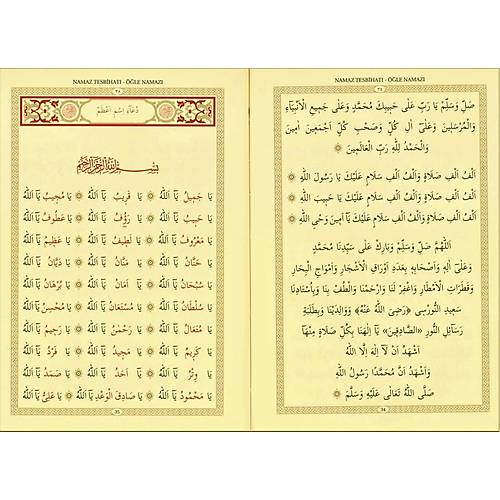 NAMAZ TESBİHATI - ÖĞLE NAMAZI
٣٤
صَلِّ وَسَلِّمْ يَا رَبِّ عَلَى حَبِيبِكَ مُحَمَّدٍ وَعَلَى جَمِيعِ الْاَنْبِيَاءِ
وَالْمُرْسَلِينَ وَعَلَى اٰلِ كُلٍّ وَصَحْبِ كُلٍّ اَجْمَعِينَ اٰمِينَ
وَالْحَمْدُ لِلّٰهِ رَبِّ الْعَالَمِينَ
اَلْفُ اَلْفِ صَلَاةٍ وَاَلْفُ اَلْفِ سَلَامٍ عَلَيْكَ يَا رَسُولَ اللّٰهِ
اَلْفُ اَلْفِ صَلَاةٍ وَاَلْفُ اَلْفِ سَلَامٍ عَلَيْكَ يَا حَبِيبَ اللّٰهِ
اَلْفُ اَلْفِ صَلَاةٍ وَاَلْفُ اَلْفِ سَلَامٍ عَلَيْكَ يَا اَمِينَ وَحْيِ اللّٰهِ
اَللّٰهُمَّ صَلِّ وَسَلِّمْ وَبَارِكْ عَلَى سَيِّدِنَا مُحَمَّدٍ
وَعَلَى اٰلِهِ وَاَصْحَابِهِ بِعَدَدِ اَوْرَاقِ الْاَشْجَارِ وَاَمْوَاجِ الْبِحَارِ
وَقَطَرَاتِ الْاَمْطَارِ وَاغْفِرْ لَنَا وَارْحَمْنَا وَالْطُفْ بِنَا وَبِاُسْتَادِنَا
سَعِيدِ النُّورْسِى (رَضِىَ اللّٰهُ عَنْهُ) وَوَالِدَيْنَا وَبِطَلَبَةِ
رَسَائِلِ النُّورِ «الصَّادِقِينَ» يَا اِلٰهَنَا بِكُلِّ صَلَاةٍ مِنْهَا
اَشْهَدُ اَنْ لَا اِلٰهَ اِلَّا اللّٰهُ
وَاَشْهَدُ اَنَّ مُحَمَّدًا رَسُولُ اللّٰهِ
صَلَّى اللّٰهُ تَعَالَى عَلَيْهِ وَسَلَّمَ
34
NAMAZ TESBİHATI - ÖĞLE NAMAZI
٣٥
دُعَاءِ اِسْمِ اَعْظَمْ
بِسْمِ اللّٰهِ الرَّحْمٰنِ الرَّحِيمِ
يَا جَمِيلُ يَا اَللّٰهُ يَا قَرِيبُ يَا اَللّٰهُ يَا مُجِيبُ يَا اَللّٰهُ
يَا حَبِيبُ يَا اَللّٰهُ يَا رَؤُفُ يَا اَللّٰهُ يَا عَطُوفُ يَا اَللّٰهُ
يَا مَعْرُوفُ يَا اَللّٰهُ يَا لَطِيفُ يَا اَللّٰهُ يَا عَظِيمُ يَا اَللّٰهُ
يَا حَنَّانُ يَا اَللّٰهُ يَا مَنَّانُ يَا اَللّٰهُ يَا دَيَّانُ يَا اَللّٰهُ
يَا سُبْحَانُ يَا اَللّٰهُ يَا اَمَانُ يَا اَللّٰهُ يَا بُرْهَانُ يَا اَللّٰهُ
يَا سُلْطَانُ يَا اَللّٰهُ يَا مُسْتَعَانُ يَا اَللّٰهُ يَا مُحْسِنُ يَا اَللّٰهُ
يَا مُتَعَالُ يَا اَللّٰهُ يَا رَحْمٰنُ يَا اَللّٰهُ يَا رَحِيمُ يَا اَللّٰهُ
يَا كَرِيمُ يَا اَللّٰهُ يَا مَجِيدُ يَا اَللّٰهُ يَا فَرْدُ يَا اَللّٰهُ
يَا وِتْرُ يَا اَللّٰهُ يَا اَحَدُ يَا اَللّٰهُ يَا صَمَدُ يَا اَللّٰهُ
يَا مَحْمُودُ يَا اَللّٰهُ يَا صَادِقَ الْوَعْدِ يَا اَللّٰهُ يَا عَلِىُّ يَا اَللّٰهُ
35